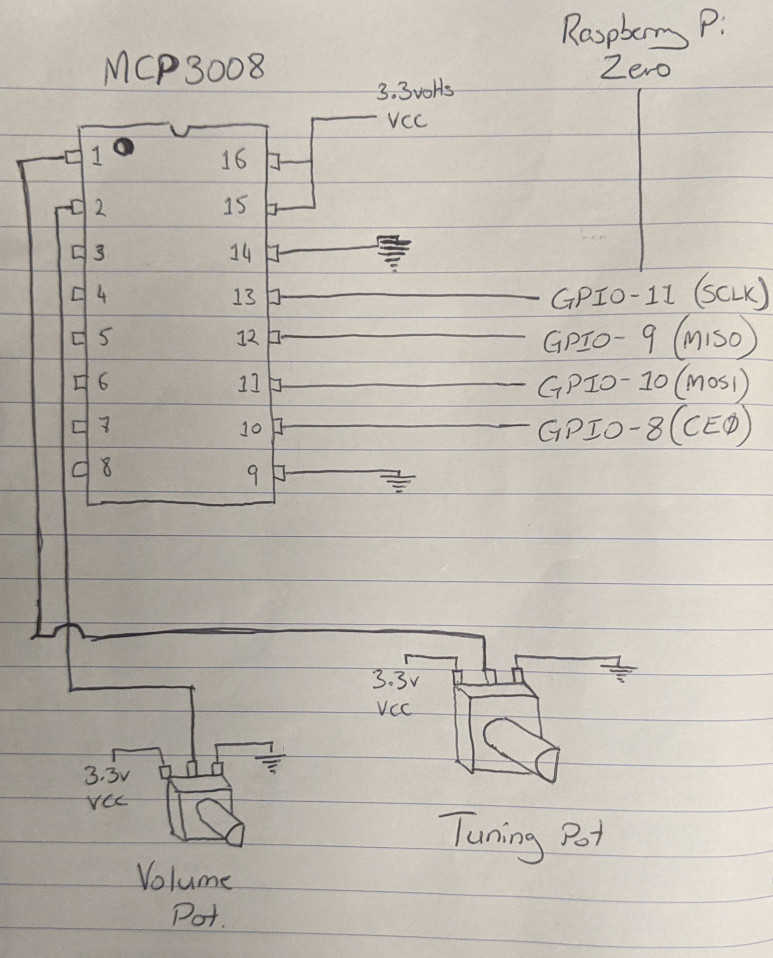 Raspberry Pi
Zero
MCP3008
3.3volts
VCC
1
16
2
15
3
14
4
13
GPIO-11 (SCLK)
5
12
GPIO-9 (MISO)
6
11
GPIO-10 (MOSI)
7
10
GPIO-8 (CE0)
8
9
3.3v
VCC
3.3v
VCC
Tuning Pot
Volume
Pot.